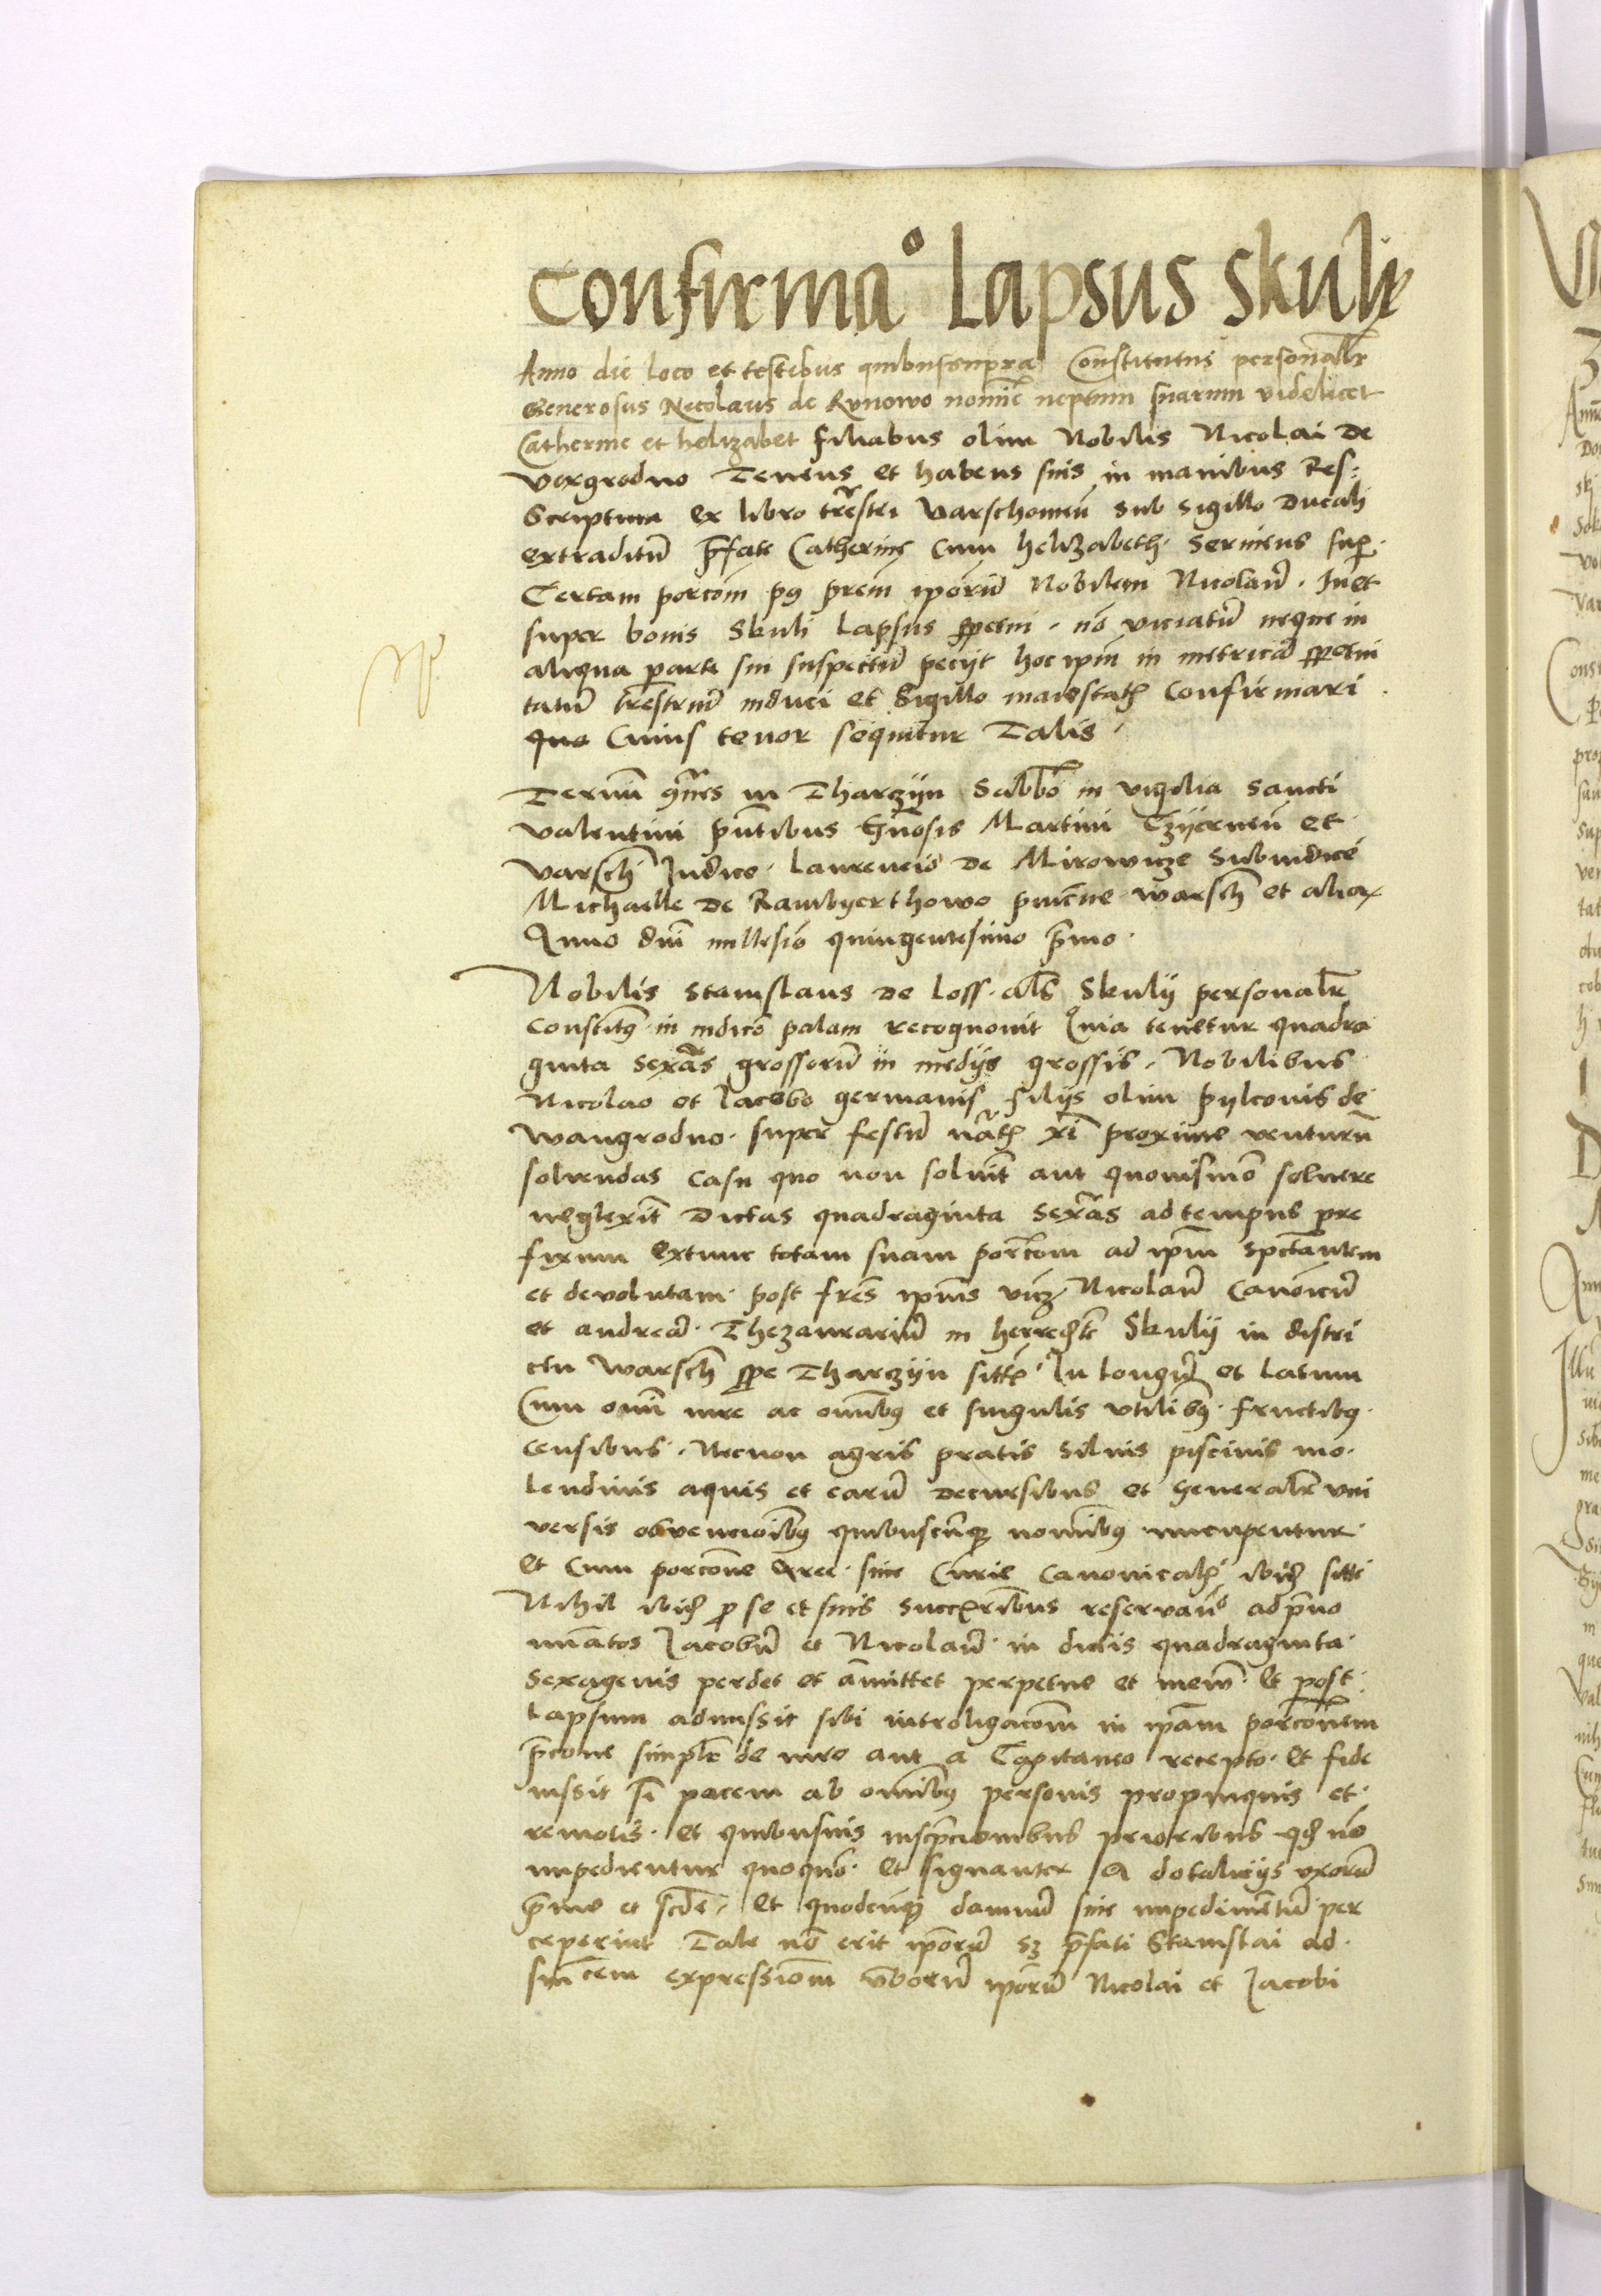 Confirmaº Lapsus Skuly
Anno die loco et testibus quibus supra Constitutus personalr
Generosus Nicolaus de Rvnowo nomine neptum suarum videlicet
Catherine et helizabet filiabus olim Nobilis Nicolai de
Vexgrodno Tenens et habens suis in manibus Res:
Scriptum ex libro trestri Varschouien sub sigillo Ducali
extraditu pfate Catherine cum helizabeth seruiens sup
Certam porcom p9 prem iporu Nobilem Nicolau. In et
super bonis Skuli Lapsus ppetui. no viciatu neque in
aliqua parte sui suspectu peciit hoc ipm in metrica ppetui
tatu trestriu induci et Sigillo maiestatis confirmari
Cuius tenor sequitur Talis
Termi gnles in Tharzyn Sabbo in vigilia Sancti
Valentini pntibus Gnosis Martini Czyernen et
Varsch Iudice. Laurencio de Mirowicze Subiudice
Michaelle de Rambyerthowo pincne warsch et aliorum
Anno dni millesio quingentesimo primo.
Nobilis Stanislaus de Loss. als Skuly personalr
constitus in iudicio palam recognouit Quia tenetur quadra
ginta sexas grossoru in medys grossis. Nobilibus
Nicolao et Iacobo germanis filys olim pylconis de
Wangrodno. super festu natis xi proxime venturu
soluendas casu quo non soluit aut quouismo soluere
neglexit dictas quadraginta sexas ad tempus pre
fixum extunc totam suam portiom ad ipm spectantem
et deuolutam. post fres ipius vicz Nicolau Canonicu
et andrea. Thezaurariu in herrede Skuly in distri
ctu warsch ppe Tharzyn sitte. In Longu et latum
Cum omi iure ac omibus et singulis vtilibus. fructibus.
censibus. Necnon agris pratis siluis piscinis mo.
lendinis aquis et earu decursibus et generalr vni
versis obvencioibus quibuscunque nomibus nuncupentur.
Et cum porcione Aree. sine Curie Canonicalis ibidem sitte
Nihil ibidem pro se et suis succeribus reservans ad pno
minatos Iacobu et Nicolau. in dictis quadraginta.
Sexagenis perdet et amittet perpetue et in ewm. Et post
Lapsum admissit sibi introligacom in ipam porcionem
precone simplr de iure aut a Capitaneo recepto. Et fide
iussit pacem ab omibus personis propinquis et.
remotis. et quibusuis inscripcionibus prioribus qd no
impedientur quoquo. Et signanter A dotalicys vxoru
prime et scde. Et quodcunque damnu sine impedimentu per
ceperint Tale no erit iporu sz pfati Stanislai ad.
simcem expressiom vboru ipsoru Nicolai et Iacobi